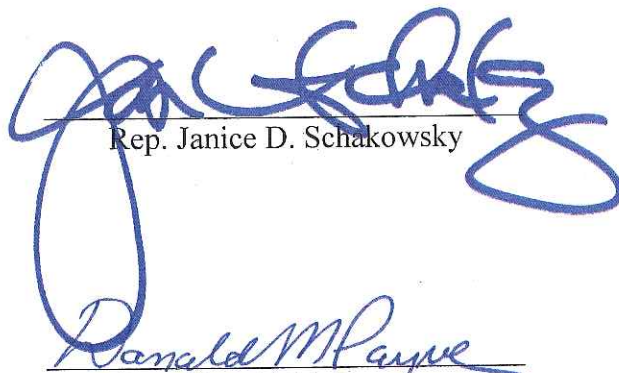 Jan Schakowsky
Rep. Janice D. Schakowsky
Donald M Payne